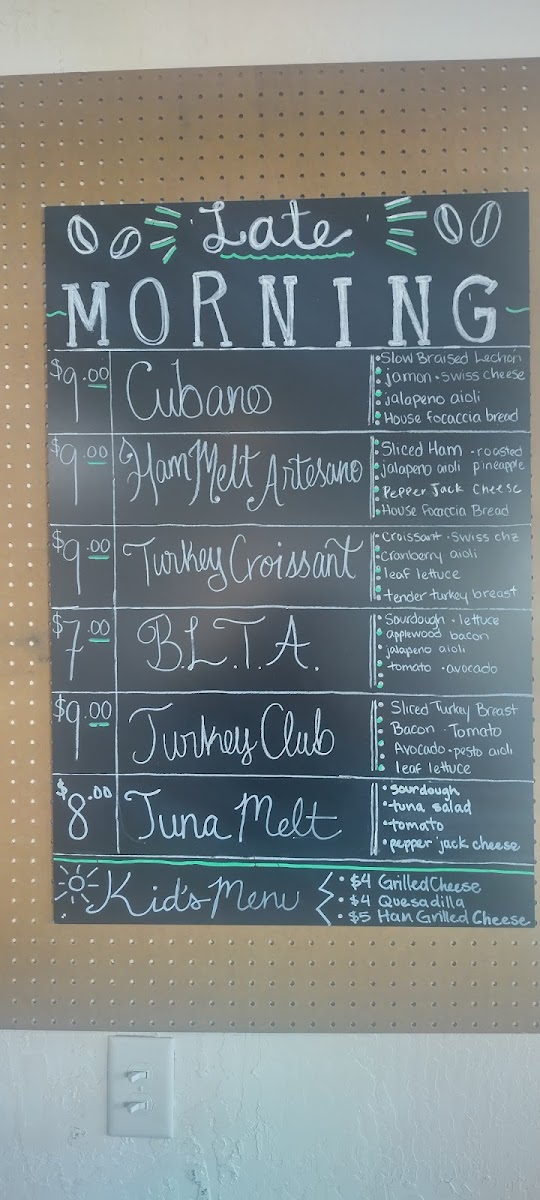 Late
MORNING
$9.00 Cubano
Slow Braised Lechon
jamon · swiss cheese
jalapeno aioli
House focaccia bread
$9.00 Ham Melt Artesano
Sliced Ham · roasted
jalapeno aioli pineapple
Pepper Jack Cheese
House Focaccia Bread
$9.00 Turkey Croissant
Croissant · Swiss chz
Cranberry aioli
leaf lettuce
tender turkey breast
$7.00 B.L.T.A.
Sourdough · lettuce
applewood bacon
jalapeno aioli
tomato · avocado
$9.00 Turkey Club
Sliced Turkey Breast
Bacon · Tomato
Avocado · pesto aioli
leaf lettuce
$8.00 Tuna Melt
· sourdough
· tuna salad
· tomato
· pepper jack cheese
Kid's Menu
· $4 Grilled Cheese
· $4 Quesadilla
· $5 Ham Grilled Cheese